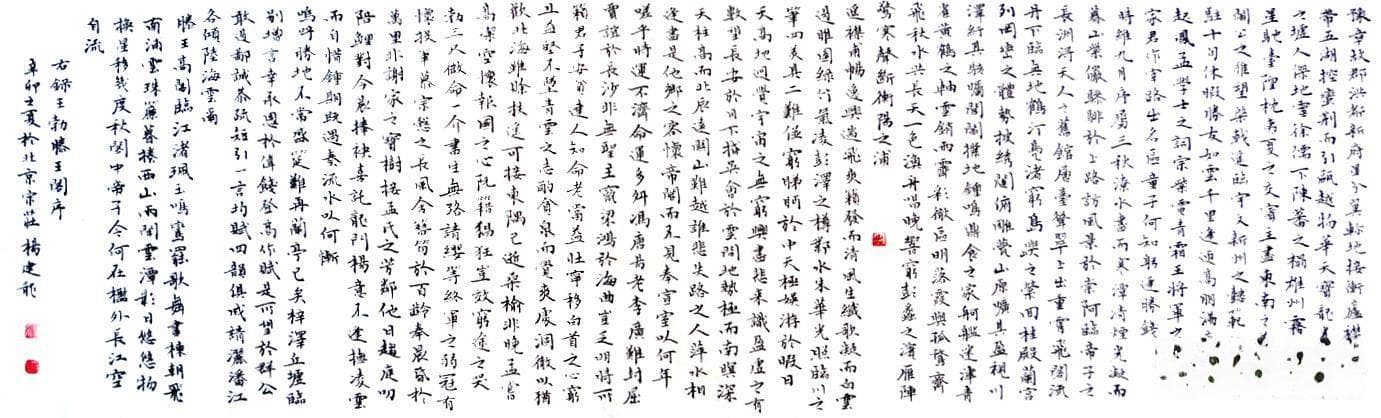 豫章故郡洪都新府星分翼軫地接衡廬襟
帶五湖控蠻荊而引甌越物華天寶龍光
之墟人傑地靈徐孺下陳蕃之榻雄州霧
星馳臺隍枕夷夏之交賓主盡東南之
閻公之雅望棨戟遙臨宇文新州之懿範
駐十旬休暇勝友如雲千里逢迎高朋滿
起鳳孟學士之詞宗紫電青霜王將軍之
家君作宰路出名區童子何知躬逢勝餞
時維九月序屬三秋潦水盡而寒潭清煙光凝而
暮山紫儼驂騑於上路訪風景於崇阿臨帝子之
長洲得天人之舊館層臺聳翠上出重霄飛閣流
丹下臨無地鶴汀鳧渚窮島嶼之縈回桂殿蘭宮
列岡巒之體勢披繡闥俯雕甍山原曠其盈視川
澤紆其駭矚閭閻撲地鐘鳴鼎食之家舸艦迷津青
雀黃鶴之軸雲銷雨霽彩徹區明落霞與孤鶩齊
飛秋水共長天一色漁舟唱晚響窮彭蠡之濱雁陣
驚寒聲斷衡陽之浦
遙襟甫暢逸興遄飛爽籟發而清風生纖歌凝而白雲
遏睢園綠竹氣凌彭澤之樽鄴水朱華光照臨川之
筆四美具二難並窮睇眄於中天極娛游於暇日
天高地迥覺宇宙之無窮興盡悲來識盈虛之有
數望長安於日下指吳會於雲間地勢極而南溟深
天柱高而北辰遠關山難越誰悲失路之人萍水相
逢盡是他鄉之客懷帝閽而不見奉宣室以何年
嗟乎時運不濟命運多舛馮唐易老李廣難封屈
賈誼於長沙非無聖主竄梁鴻於海曲豈乏明時所
賴君子安貧達人知命老當益壯寧移白首之心窮
且益堅不墜青雲之志酌貪泉而覺爽處涸轍以猶
歡北海雖賒扶搖可接東隅已逝桑榆非晚孟嘗
高潔空懷報國之心阮籍猖狂豈效窮途之哭
勃三尺微命一介書生無路請纓等終軍之弱冠有
懷投筆慕宗愨之長風舍簪笏於百齡奉晨昏於
萬里非謝家之寶樹接孟氏之芳鄰他日趨庭叨
陪鯉對今晨捧袂喜託龍門楊意不逢撫凌雲
而自惜鍾期既遇奏流水以何慚
嗚呼勝地不常盛筵難再蘭亭已矣梓澤丘墟臨
別贈言幸承恩於偉餞登高作賦是所望於群公
敢竭鄙誠恭疏短引一言均賦四韻俱成請灑潘江
各傾陸海云爾
滕王高閣臨江渚珮玉鳴鸞罷歌舞畫棟朝飛
南浦雲珠簾暮捲西山雨閑雲潭影日悠悠物
換星移幾度秋閣中帝子今何在檻外長江空
自流
右錄王勃滕王閣序
辛卯之夏於北京宗莊楊建龍